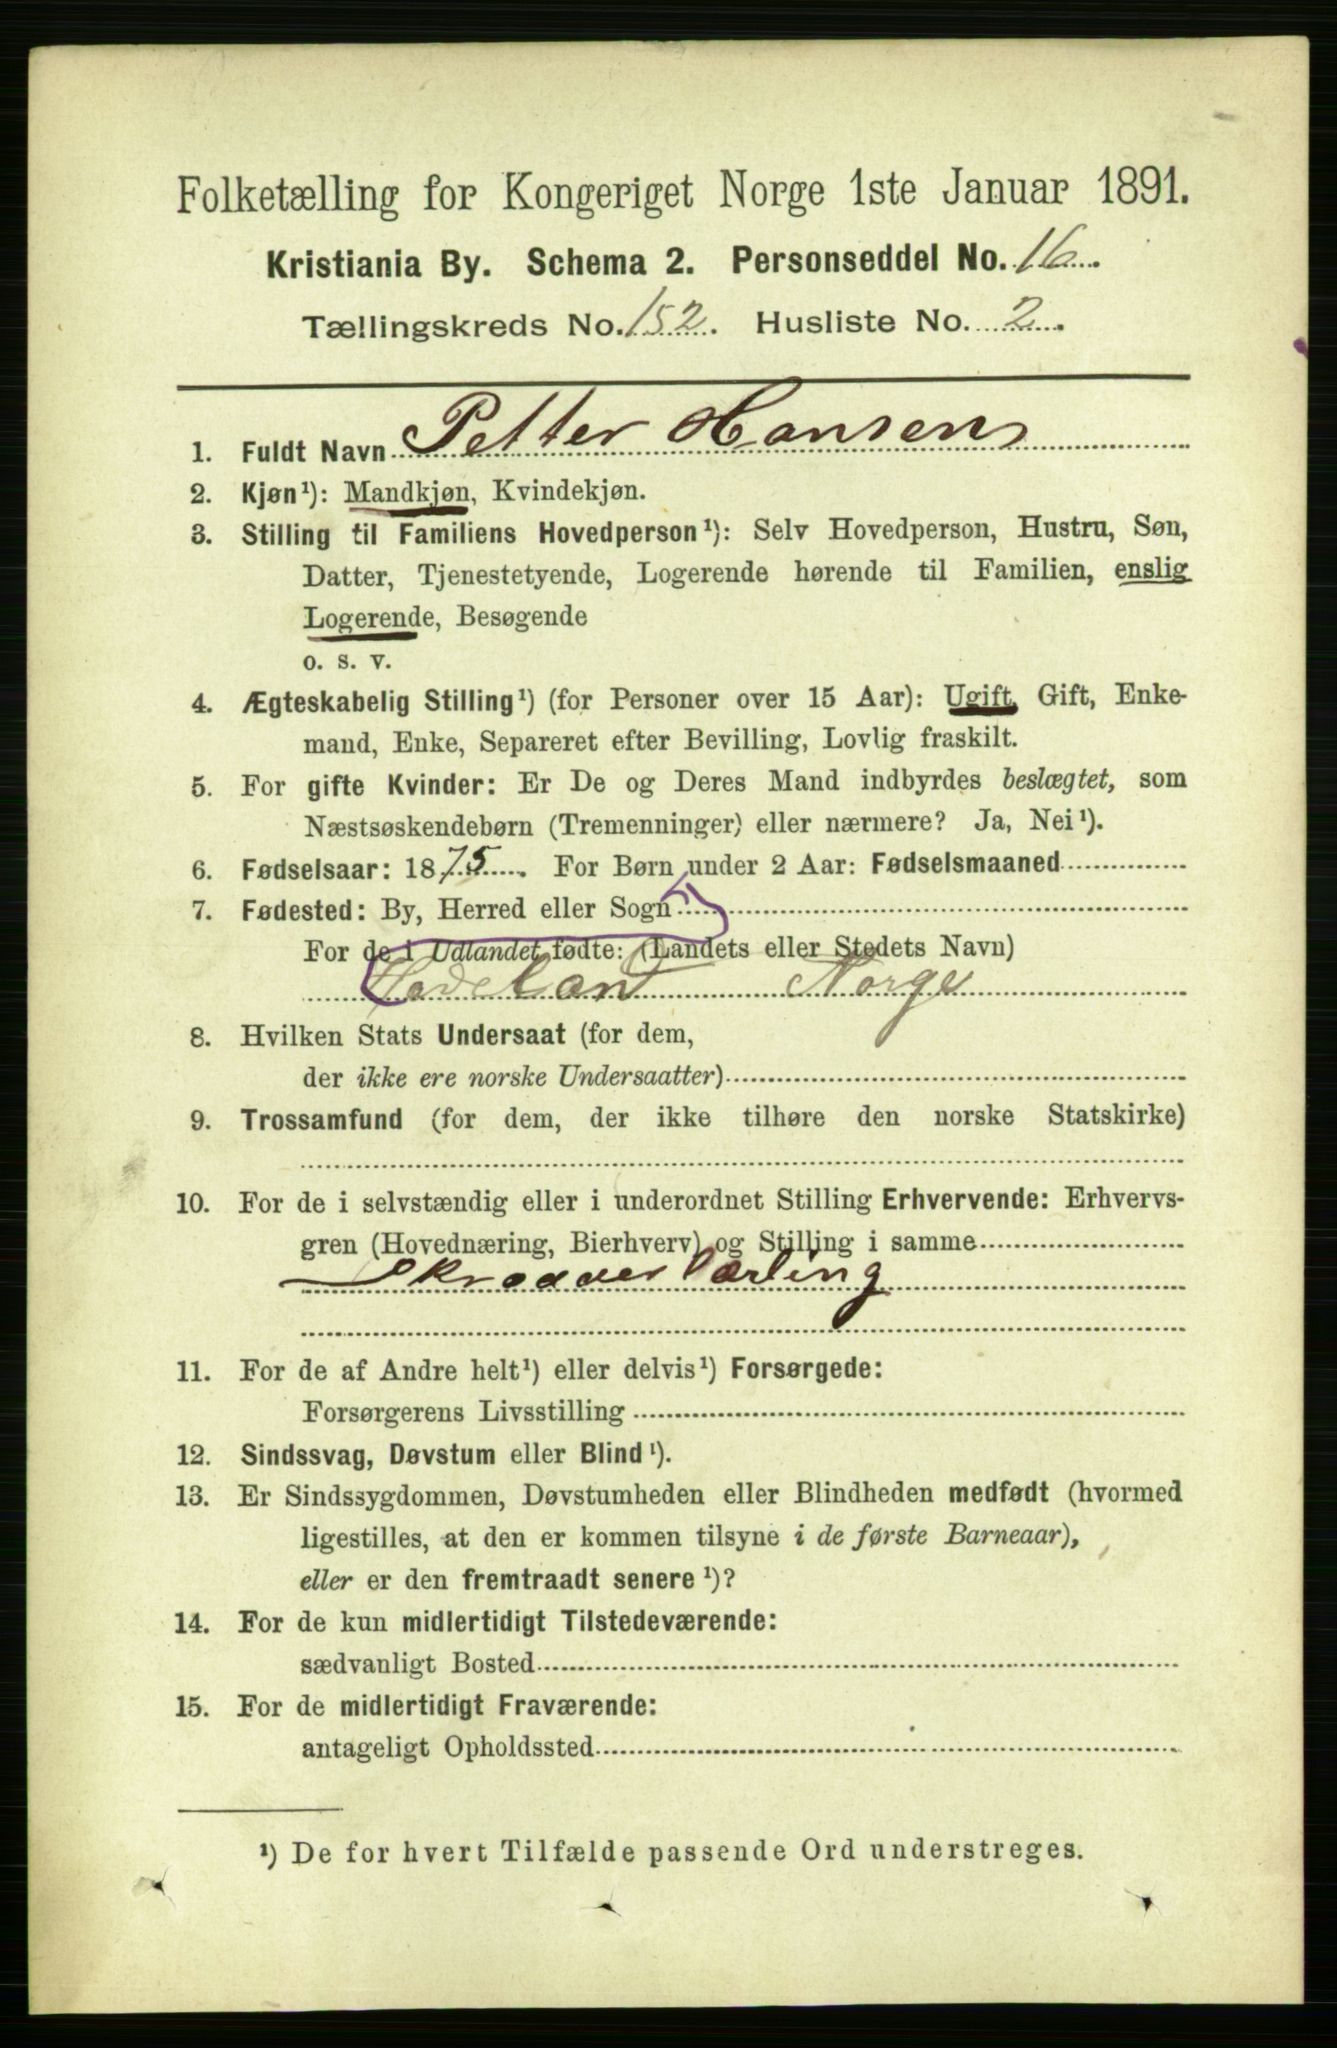 Folketælling for Kongeriget Norge 1ste Januar 1891.
Kristiania By. Schema 2. Personseddel No. 16
Tællingskreds No. 152. Husliste No. 2
1. Fuldt Navn Petter Hansen
2. Kjøn¹): Mandkjøn, Kvindekjøn.
3. Stilling til Familiens Hovedperson¹): Selv Hovedperson, Hustru, Søn,
Datter, Tjenestetyende, Logerende hørende til Familien, enslig
Logerende, Besøgende
o. s. v.
4. Ægteskabelig Stilling¹) (for Personer over 15 Aar): Ugift, Gift, Enke-
mand, Enke, Separeret efter Bevilling, Lovlig fraskilt.
5. For gifte Kvinder: Er De og Deres Mand indbyrdes beslægtet, som
Næstsøskendebørn (Tremenninger) eller nærmere? Ja, Nei¹).
6. Fødselsaar: 1875. For Børn under 2 Aar: Fødselsmaaned
7. Fødested: By, Herred eller Sogn
For de i Udlandet fødte: (Landets eller Stedets Navn)
Hadeland Norge
8. Hvilken Stats Undersaat (for dem,
der ikke ere norske Undersaatter)
9. Trossamfund (for dem, der ikke tilhøre den norske Statskirke)
10. For de i selvstændig eller i underordnet Stilling Erhvervende: Erhvervs-
gren (Hovednæring, Bierhverv) og Stilling i samme
Skrædder Lærling
11. For de af Andre helt¹) eller delvis¹) Forsørgede:
Forsørgerens Livsstilling
12. Sindssvag, Døvstum eller Blind¹).
13. Er Sindssygdommen, Døvstumheden eller Blindheden medfødt (hvormed
ligestilles, at den er kommen tilsyne i de første Barneaar),
eller er den fremtraadt senere¹)?
14. For de kun midlertidigt Tilstedeværende:
sædvanligt Bosted
15. For de midlertidigt Fraværende:
antageligt Opholdssted
¹) De for hvert Tilfælde passende Ord understreges.